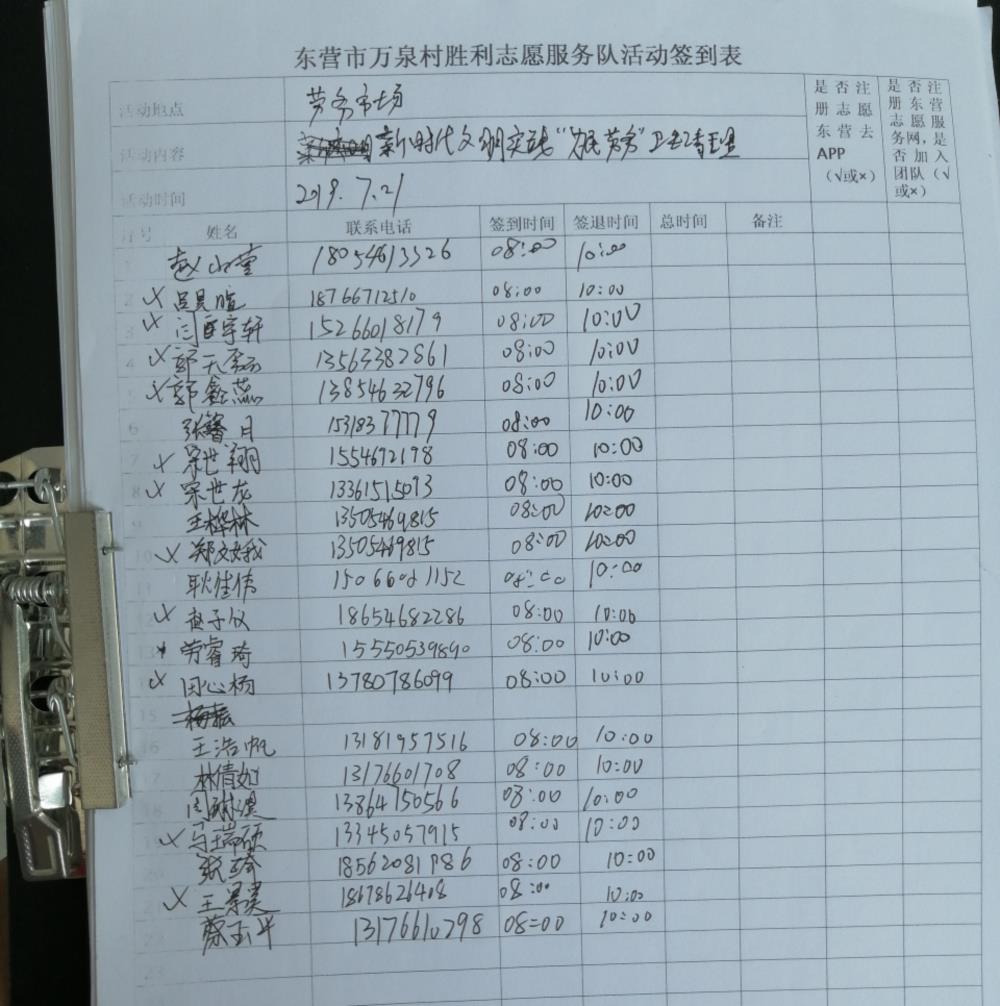 东营市万泉村胜利志愿服务队活动签到表
活动地点 劳务市场 是否注册志愿东营去APP（√或×） 是否注册东营志愿服务网，是否加入团队（√或×）
活动内容 新时代文明实践“为民劳务”卫生清理
活动时间 2019.7.21
序号 姓名 联系电话 签到时间 签退时间 总时间 备注
1 赵山雪 18054613326 08:00 10:00
2 吕昊暄 18766712510 08:00 10:00
3 闫宇轩 15266018179 08:00 10:00
4 郭天 13563382861 08:00 10:00
5 郭鑫蕊 13854632796 08:00 10:00
6 张馨月 15318377779 08:00 10:00
7 宋世翔 1554672198 08:00 10:00
8 宋世龙 13361515093 08:00 10:00
9 王桦林 13505469815 08:00 10:00
10 郑文 13505469815 08:00 10:00
11 耿佳伟 08:00 10:00
12 子仪 18654682286 08:00 10:00
13 劳睿琦 15550539890 08:00 10:00
14 田心杨 13780786099 08:00 10:00
15
16 王浩帆 13181957516 08:00 10:00
17 林倩如 13176601708 08:00 10:00
18 周 13864750566 08:00 10:00
19 马瑞硕 13345057915 08:00 10:00
20 张琦 18562081986 08:00 10:00
21 王景昊 18678626408 08:00 10:00
22 蔡玉华 13176610298 08:00 10:00
23